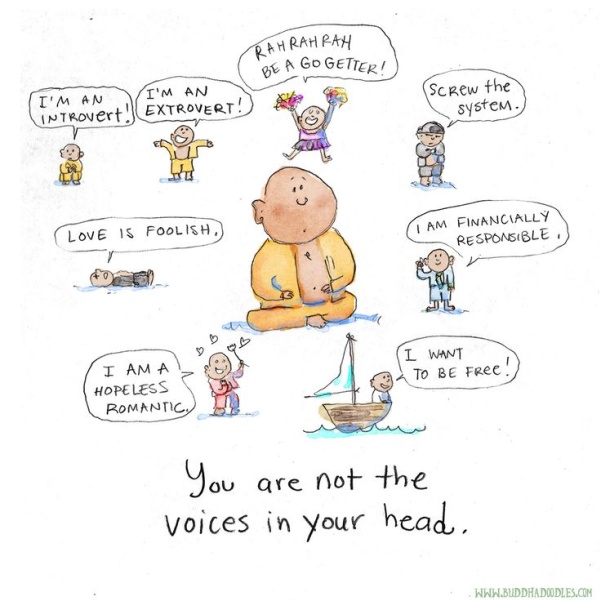 RAH RAH RAH
BE A GO GETTER!
I'M AN
INTROVERT!
I'M AN
EXTROVERT!
SCREW the
SYSTEM.
LOVE IS FOOLISH.
I AM FINANCIALLY
RESPONSIBLE.
I AM A
HOPELESS
ROMANTIC.
I WANT
TO BE FREE!
You are not the
voices in your head.
WWW.BUDDHADOODLES.COM